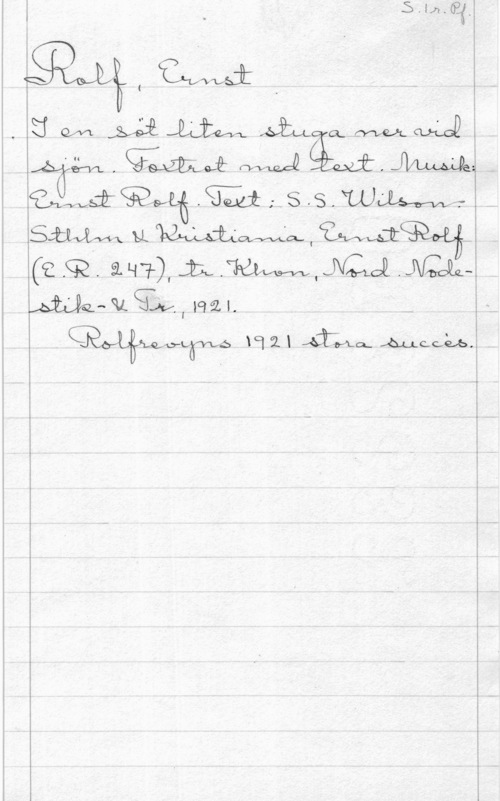 S. 1r. Pf.
Rolf, Ernst
I en söt liten stuga ner vid
sjön. Foxtrot med text. Musik:
Ernst Rolf. Text: S.S. Wilson.-
Sthlm & Kristiania, Ernst Rolf
(E.R. 247), tr. Khvn, Nord. Node-
stik- & Tr., 1921.
Rolfrevyns 1921 stora succès.